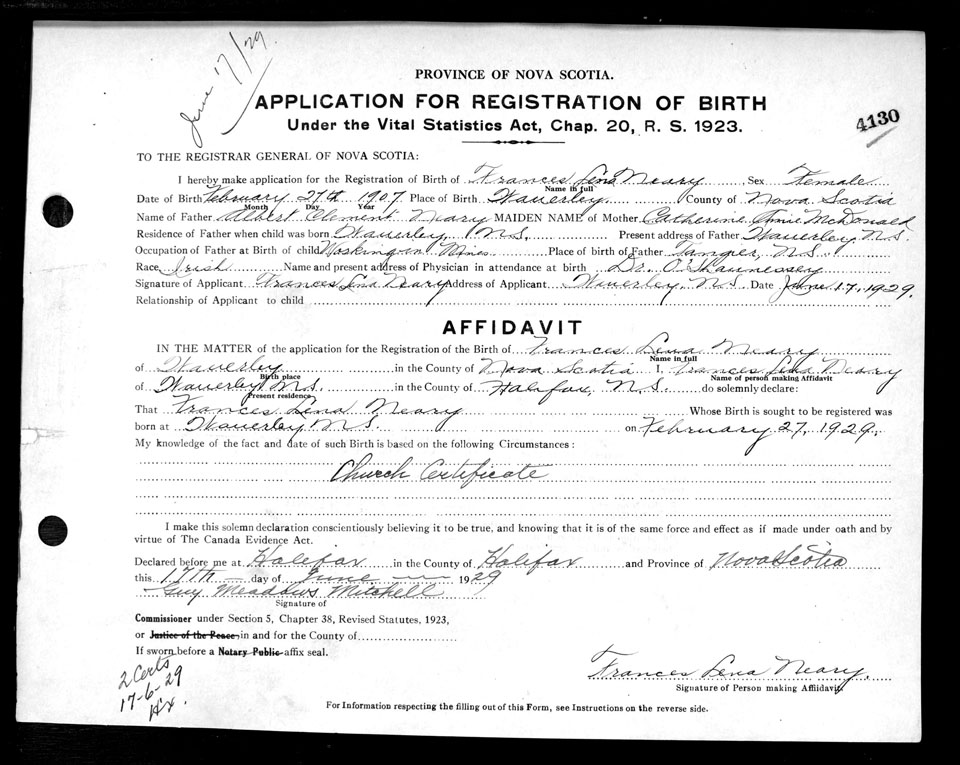 June 17/29
PROVINCE OF NOVA SCOTIA.
APPLICATION FOR REGISTRATION OF BIRTH
4130
Under the Vital Statistics Act, Chap. 20, R. S. 1923.
TO THE REGISTRAR GENERAL OF NOVA SCOTIA:
I hereby make application for the Registration of Birth of Frances Lena Neary Sex Female
Name in full
Date of Birth February 27th 1907 Place of Birth Waverley County of Nova Scotia
Month Day Year
Name of Father Albert Clement Neary MAIDEN NAME of Mother Catherine Annie McDonald
Residence of Father when child was born Waverley N.S. Present address of Father Waverley N.S.
Occupation of Father at Birth of child Working in Mines Place of birth of Father Tangier, N.S.
Race Irish Name and present address of Physician in attendance at birth Dr. O'Shaunessey
Signature of Applicant Frances Lena Neary Address of Applicant Waverley, N.S. Date June 17, 1929.
Relationship of Applicant to child
AFFIDAVIT
IN THE MATTER of the application for the Registration of the Birth of Frances Lena Neary
Name in full
of Waverley in the County of Nova Scotia I, Frances Lena Neary
Birth place Name of person making Affidavit
of Waverley N.S. in the County of Halifax, N.S. do solemnly declare:
Present residence
That Frances Lena Neary Whose Birth is sought to be registered was
born at Waverley N.S. on February 27, 1929.
My knowledge of the fact and date of such Birth is based on the following Circumstances:
Church Certificate
I make this solemn declaration conscientiously believing it to be true, and knowing that it is of the same force and effect as if made under oath and by
virtue of The Canada Evidence Act.
Declared before me at Halifax in the County of Halifax and Province of Nova Scotia
this 17th day of June 1929
Guy Meadows Mitchell
Signature of
Commissioner under Section 5, Chapter 38, Revised Statutes, 1923,
or Justice of the Peace in and for the County of
If sworn before a Notary Public affix seal.
2 Certs
17-6-29
Hx.
Frances Lena Neary.
Signature of Person making Affidavit.
For Information respecting the filling out of this Form, see Instructions on the reverse side.